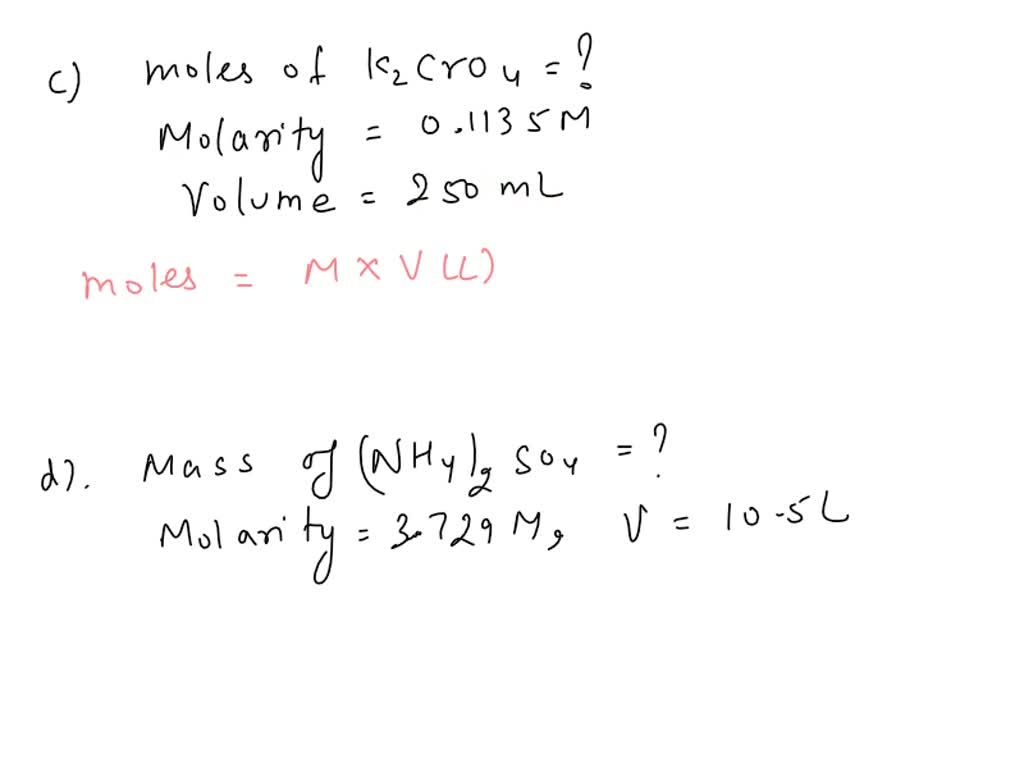 c) moles of K₂CrO₄ = ?
Molarity = 0.1135 M
Volume = 250 mL
moles = M × V (L)
d). Mass of (NH₄)₂ SO₄ = ?
Molarity = 3.729 M, V = 10.5 L